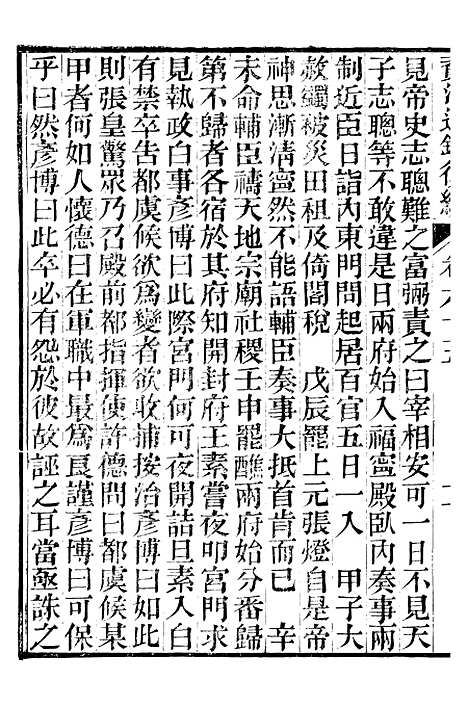 見帝史志聰難之富弼責之曰宰相安可一日不見天
子志聰等不敢違是日兩府始入福寧殿臥內奏事兩
制近臣日詣內東門問起居百官五日一入　甲子大
赦蠲被災田租及倚閣稅　戊辰罷上元張燈自是帝
神思漸清寧然不能語輔臣奏事大抵首肯而已　辛
未命輔臣禱天地宗廟社稷壬申罷醮兩府始分番歸
第不歸者各宿於其府知開封府王素嘗夜叩宮門求
見執政白事彥博曰此際宮門何可夜開詰旦素入白
有禁卒告都虞候欲爲變者欲收捕按治彥博曰如此
則張皇驚眾乃召殿前都指揮使許德問曰都虞候某
甲者何如人懷德曰在軍職中最爲良謹彥博曰可保
乎曰然彥博曰此卒必有怨於彼故誣之耳當亟誅之